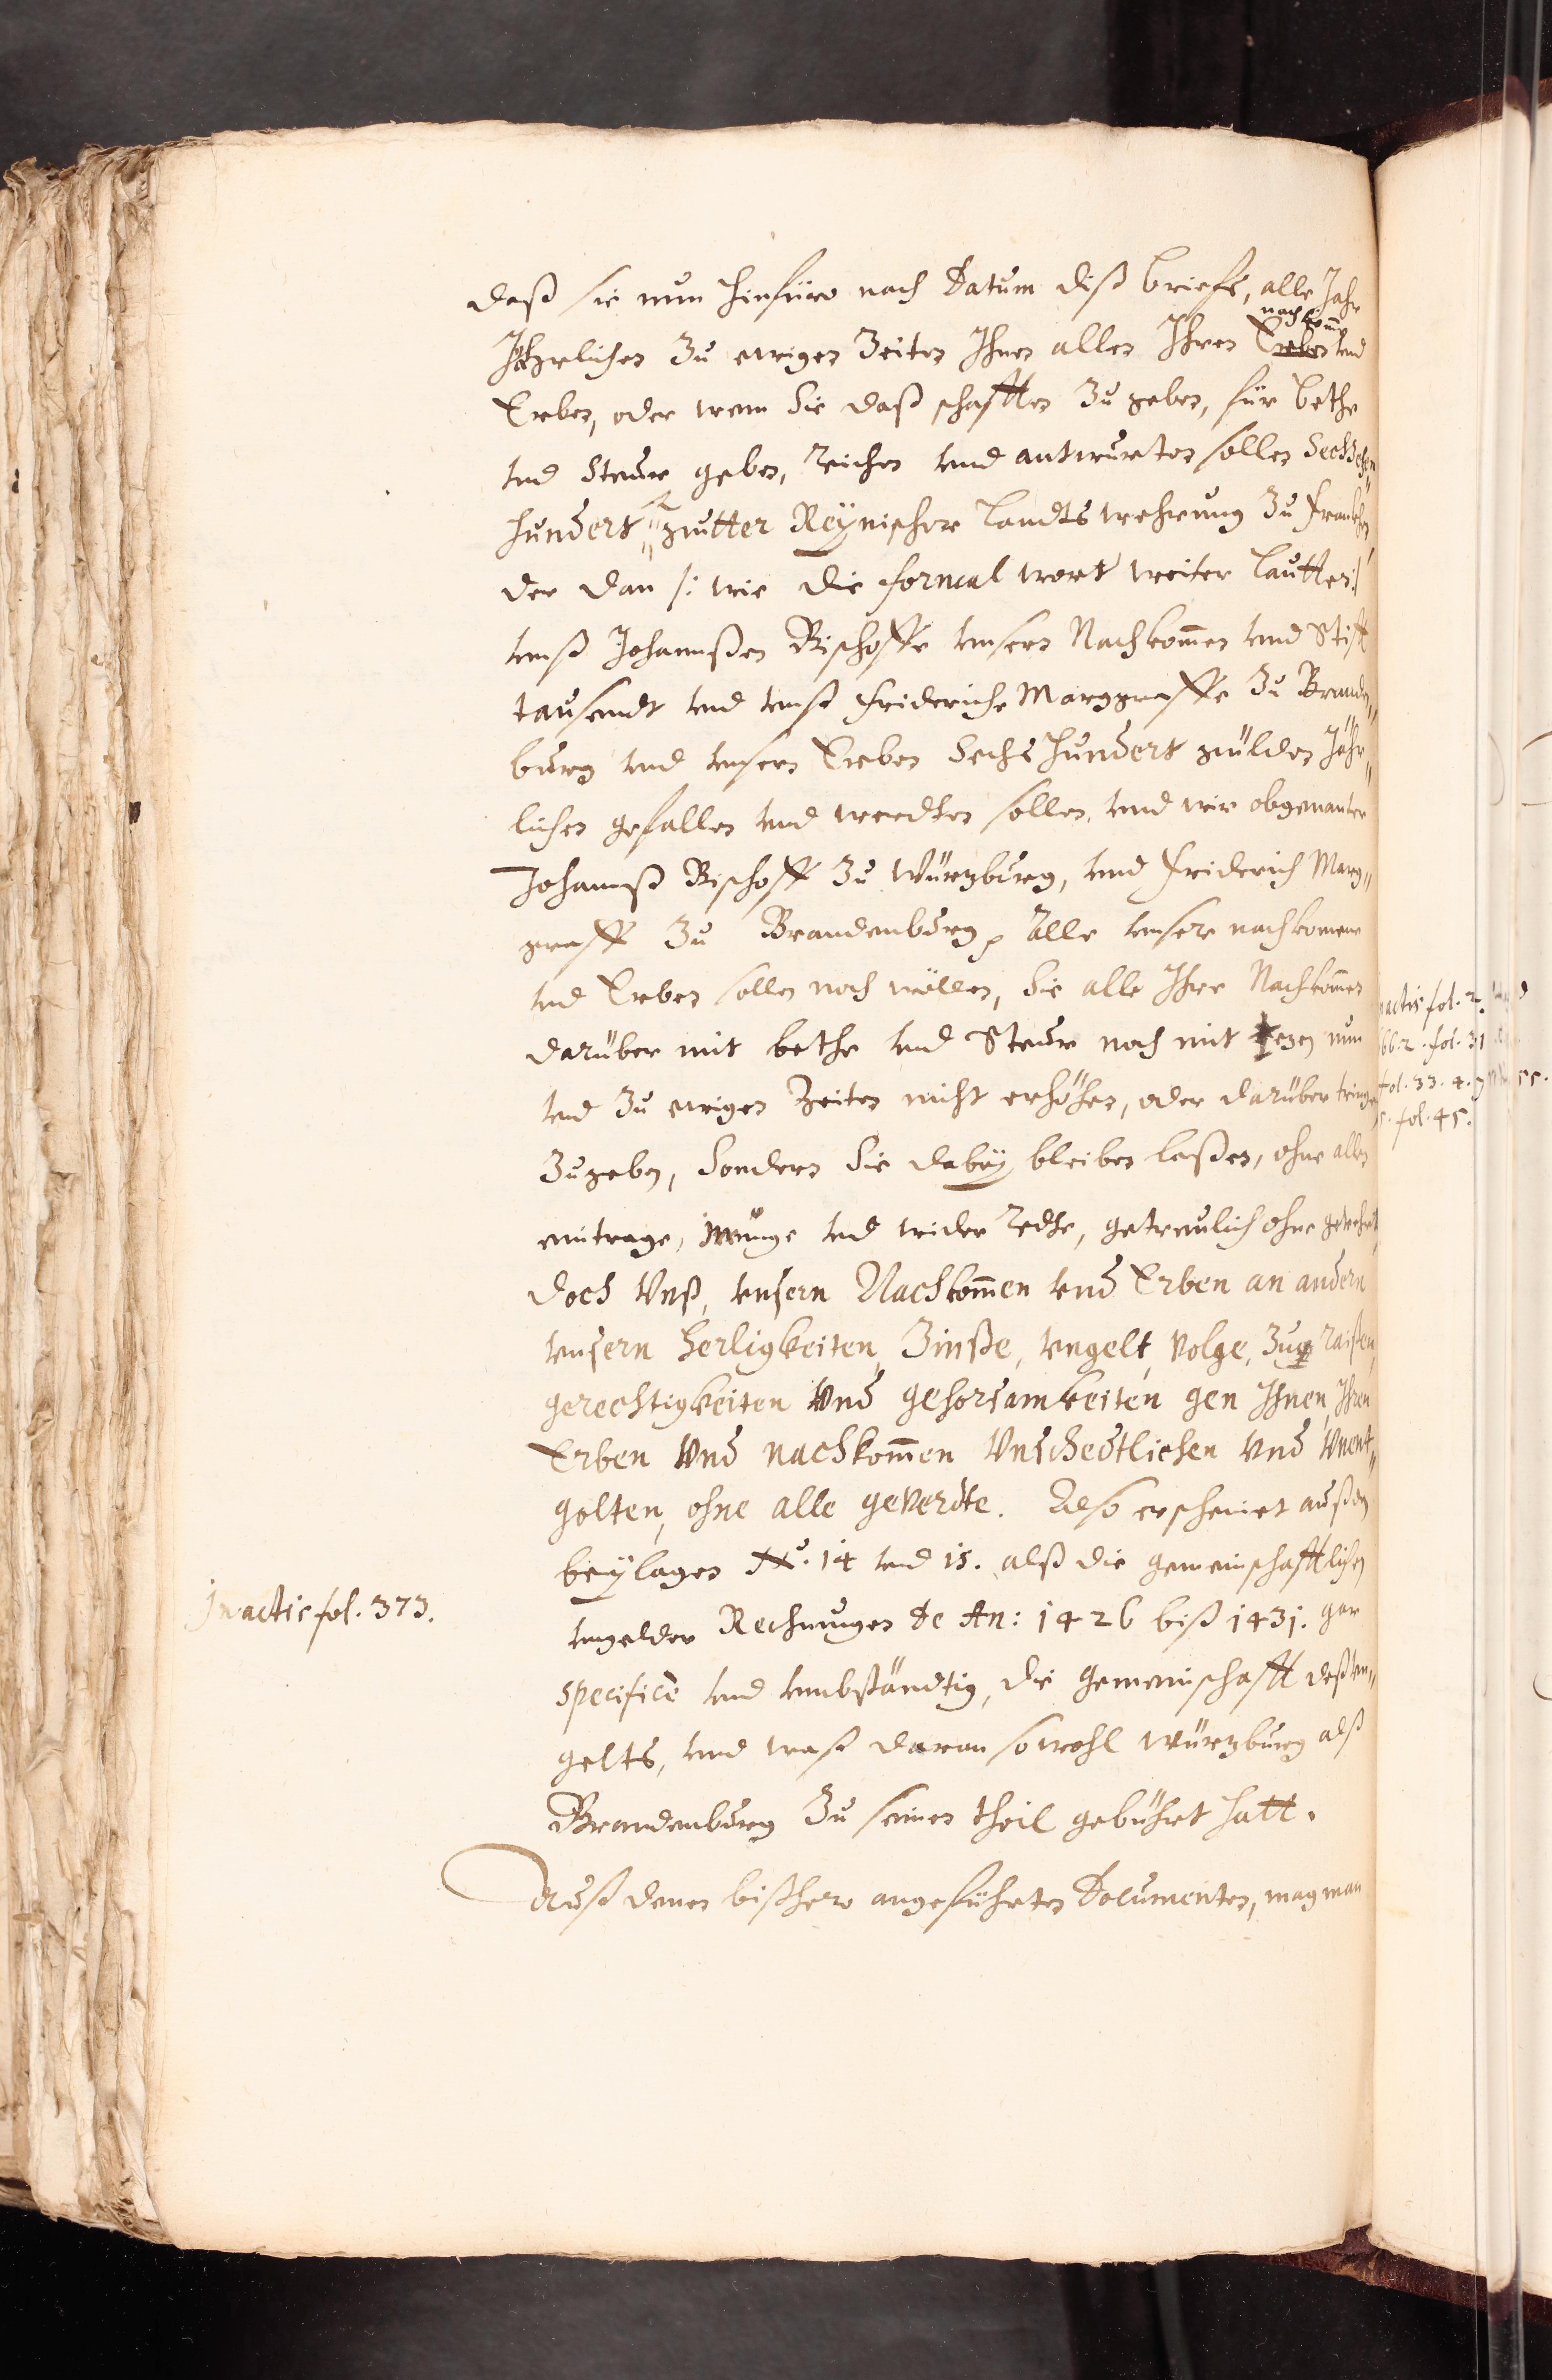 daß sie nun hinfüro nach Datum diß briefs, alle Jahr
Jährlichen zu ewigen Zeiten Ihnen allen Ihren Erben nachkom̃ vnd
Erben, oder wem Sie daß schafften zu geben, für bethe
vnd Steur geben, reichen vnd antwurten sollen Sechzehen
hundert fl gutter Reÿnischer Landtswehrung zu Francken
der dan /: wie die formal wort weiter lautten :/
vnß Johannßen Bischoffe vnsern Nachkom̃en vnd Stifft
tausendt vnd vnß Friderich Marggraffe zu Branden„
burg vnd vnsern Erben Sechs Hundert gulden Jähr„
lichen gefallen vnd werdten sollen, vnd wir obgenanter
Johannß Bischoff zu Würzburg, vnd Friderich Marg„
graff zu Brandenburg, alle vnsere nachkomene
vnd Erben sollen noch wöllen, Sie alle Ihre Nachkom̃en
darüber mit bethe vnd Steur noch mit nun
vnd zu ewigen Zeiten nicht erhöhen, oder darüber tringen
zugeben, Sondern Sie dabeÿ bleiben laßen, ohne allen
eintrage, Irrunge vnd wider redte, getreulich ohne geverdt,
doch Vnß, vnsern Nachkom̃en vnd Erben an andern
vnsern Herligkeiten, Zinße, vngelt, Volge, Zug Raißen,
gerechtigkeiten vnd gehorsamkeiten gen Ihnen, Ihren
Erben vnd nachkom̃en Vnschedtlichen vnd Vnent„
golten, ohne alle geverdte. Also erscheinet außen
beÿlagen No. 14 vnd 15. alß die gemeinschafftlichen
In actis fol. 373.
vngelder Rechnungen de An: 1426 biß 1431. gar
specificè vnd vmbständtig, die gemeinschafft deß vn„
gelts, vnd waß daran sowohl Würzburg alß
Brandenburg zu seinen theil gebühret hatt.
Auß denen bißhero angeführten Documenten, mag man
actis fol. 2.
fol. 31
fol. 33. 4.
fol. 45.